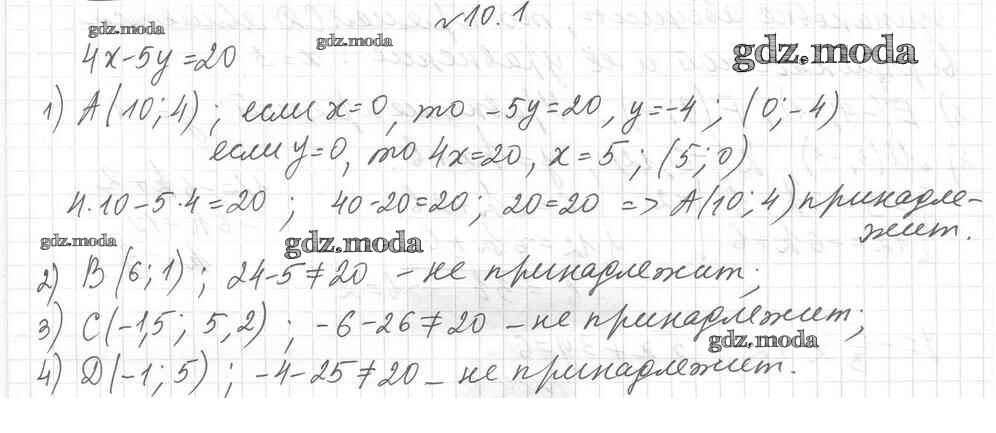 №10.1
gdz.moda
gdz.moda
gdz.moda
4x-5y=20
1) A(10;4); если x=0, то -5y=20, y=-4; (0;-4)
если y=0, то 4x=20, x=5; (5;0)
4·10-5·4=20; 40-20=20; 20=20 => A(10;4) принадле-
жит.
gdz.moda
gdz.moda
2) B(6;1); 24-5≠20 - не принадлежит;
3) C(-1,5; 5,2); -6-26≠20 - не принадлежит;
gdz.moda
4) D(-1;5); -4-25≠20 - не принадлежит.